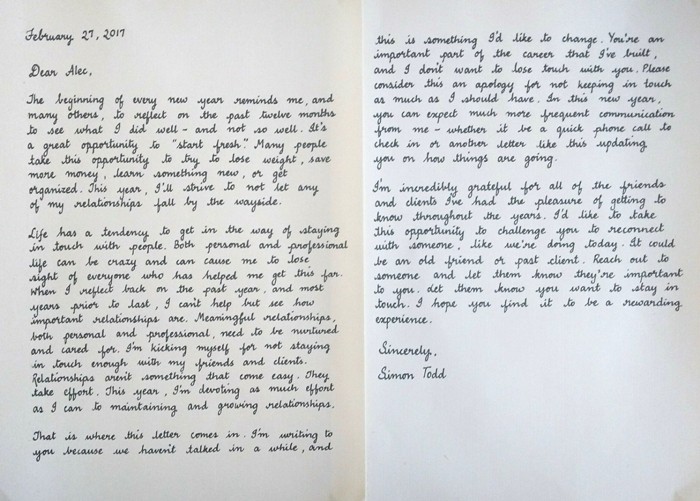 February 27, 2017
Dear Alec,
The beginning of every new year reminds me, and
many others, to reflect on the past twelve months
to see what I did well - and not so well. It's
a great opportunity to "start fresh." Many people
take this opportunity to try to lose weight, save
more money, learn something new, or get
organized. This year, I'll strive to not let any
of my relationships fall by the wayside.
Life has a tendency to get in the way of staying
in touch with people. Both personal and professional
life can be crazy and can cause me to lose
sight of everyone who has helped me get this far.
When I reflect back on the past year, and most
years prior to last, I can't help but see how
important relationships are. Meaningful relationships,
both personal and professional, need to be nurtured
and cared for. I'm kicking myself for not staying
in touch enough with my friends and clients.
Relationships aren't something that come easy. They
take effort. This year, I'm devoting as much effort
as I can to maintaining and growing relationships.
That is where this letter comes in. I'm writing to
you because we haven't talked in a while, and
this is something I'd like to change. You're an
important part of the career that I've built,
and I don't want to lose touch with you. Please
consider this an apology for not keeping in touch
as much as I should have. In this new year,
you can expect much more frequent communication
from me - whether it be a quick phone call to
check in or another letter like this updating
you on how things are going.
I'm incredibly grateful for all of the friends
and clients I've had the pleasure of getting to
know throughout the years. I'd like to take
this opportunity to challenge you to reconnect
with someone, like we're doing today. It could
be an old friend or past client. Reach out to
someone and let them know they're important
to you. Let them know you want to stay in
touch. I hope you find it to be a rewarding
experience.
Sincerely,
Simon Todd